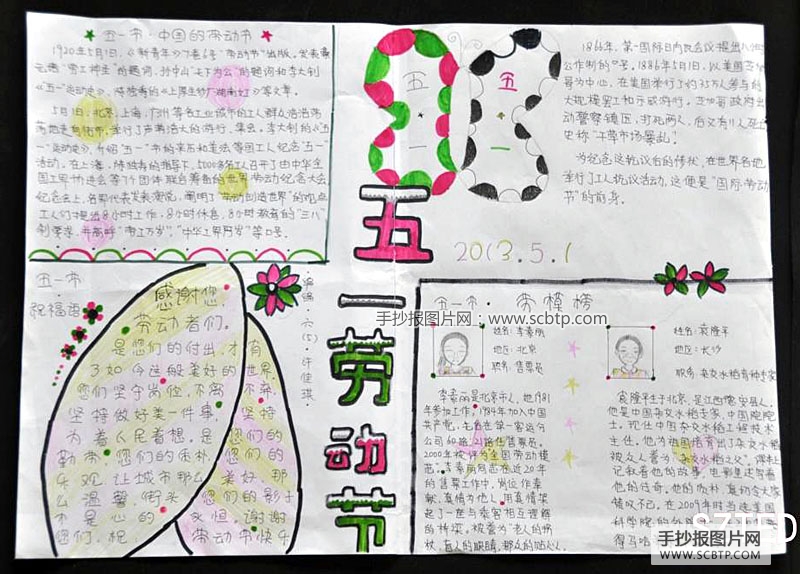 五一节·中国的劳动节
1920年5月1日,《新青年》7卷6号"劳动节"出版,发表蔡
元培"劳工神圣"的题词,孙中山"天下为公"的题词和李大钊
《五一运动史》,陈独秀的《上海厚生纱厂湖南女工》等文章。
5月1日,北京,上海,广州等各工业城市的工人群众浩浩荡
荡地走向街市,举行了声势浩大的游行、集会。李大钊的《五
一运动史》,介绍"五一"节的来历和美法等国工人纪念五一
活动。在上海,陈独秀的指导下,5000多名工人召开了由中华全
国工界协进会等7个团体联合筹备的世界劳动纪念大会
纪念会上,各界代表发表演说,阐明了"劳动创造世界"的观点
工人们提出8小时工作,8小时休息,8小时教育的"三八"
制要求,并高呼"劳工万岁","中华工界万岁"等口号。
五
一
五
一
1866年,第一国际日内瓦会议提出八小时
工作制的口号。1886年5月1日,以美国芝加
哥为中心,在美国举行了约35万人参与的
大规模罢工和示威游行,芝加哥政府出
动警察镇压,打死两人,后又有
史称"干草市场暴乱"
为纪念这次
举行了工人抗议活动,这便是"国际劳动
节"的前身。
五一劳动节
2013.5.1
编辑:六(5)·许佳琪
五一节
祝福语
感谢您
劳动者们。
是您们的付出,才有
了如今这般美好的世界
您们坚守岗位,不离不弃,
坚持做好美一件事,坚持
为着人民着想,是您们的
勤劳,您们的质朴,您们的
乐观,让城市那么美好,那
么温馨,街头,您们的影子
不是心的永恒,谢谢
您们,祝,劳动节快乐
五一节·劳模榜
姓名:李素丽
地区:北京
职务:售票员
李素丽是北京市人,她1981
年参加工作,1984年加入中国
共产党,先后在第一客运分
公司60路、21路任售票员。
2000年被评为全国劳动模
范。李素丽同志在近20年
的售票工作中,岗位作奉
献,真情为他人,用真情架
起了一座与乘客相互理解
的桥梁,被誉为"老人的拐
杖,盲人的眼睛,群众的贴心人。
姓名:袁隆平
地区:长沙
职务:杂交水稻育种专家
袁隆平生于北京,是江西德安县人,
他是中国杂交水稻专家,中国院院
士。现任中国杂交水稻工程技术
主任。他为祖国培育出了杂交水稻
被众人誉为"杂交水稻之父",课本上
记叙着他的故事,电影里述写着
他的传奇,他的质朴,真的令大家
赞叹不已,在2009年时当选美国
科学院的外
手抄报图片网:www.scbtp.com
手抄报图片网
WWW.SCBTP.COM